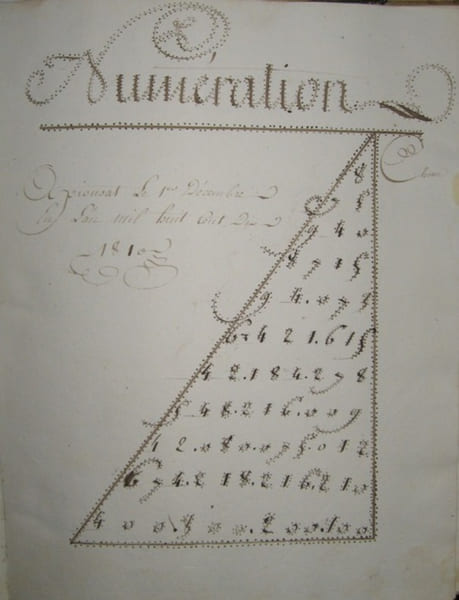 Numeration
8
A pionsat Le 1er Décembre
9 4 0
En L'an mil huit cent Dix
1810
6 4 2 1.6 1 5
4 2.1 8 4.2 7 8
5 4 8.2 1 6.0 0 9
1 2.0 8 0.0 7 5.0 1 2
6 7 4.2 1 8.2 1 6.2 1 0
4 0 0.5 0 0.2 0 0.1 0 0